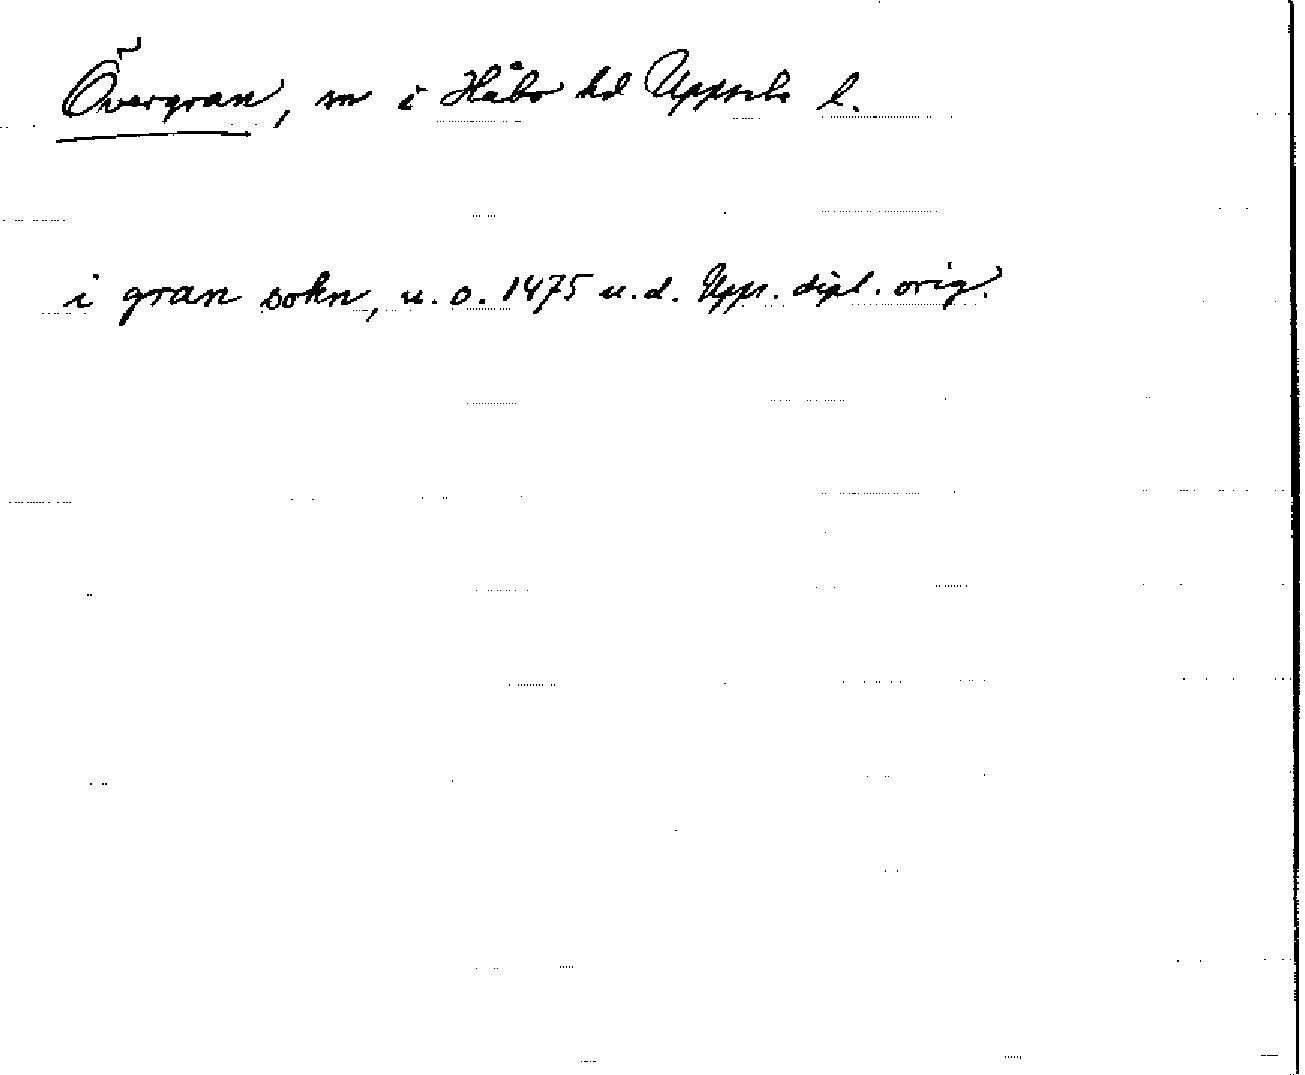 Övergran, sn i Håbo hd Uppsala l.
i gran sokn, u. o. 1475 u. d. Upps. dipl. orig.